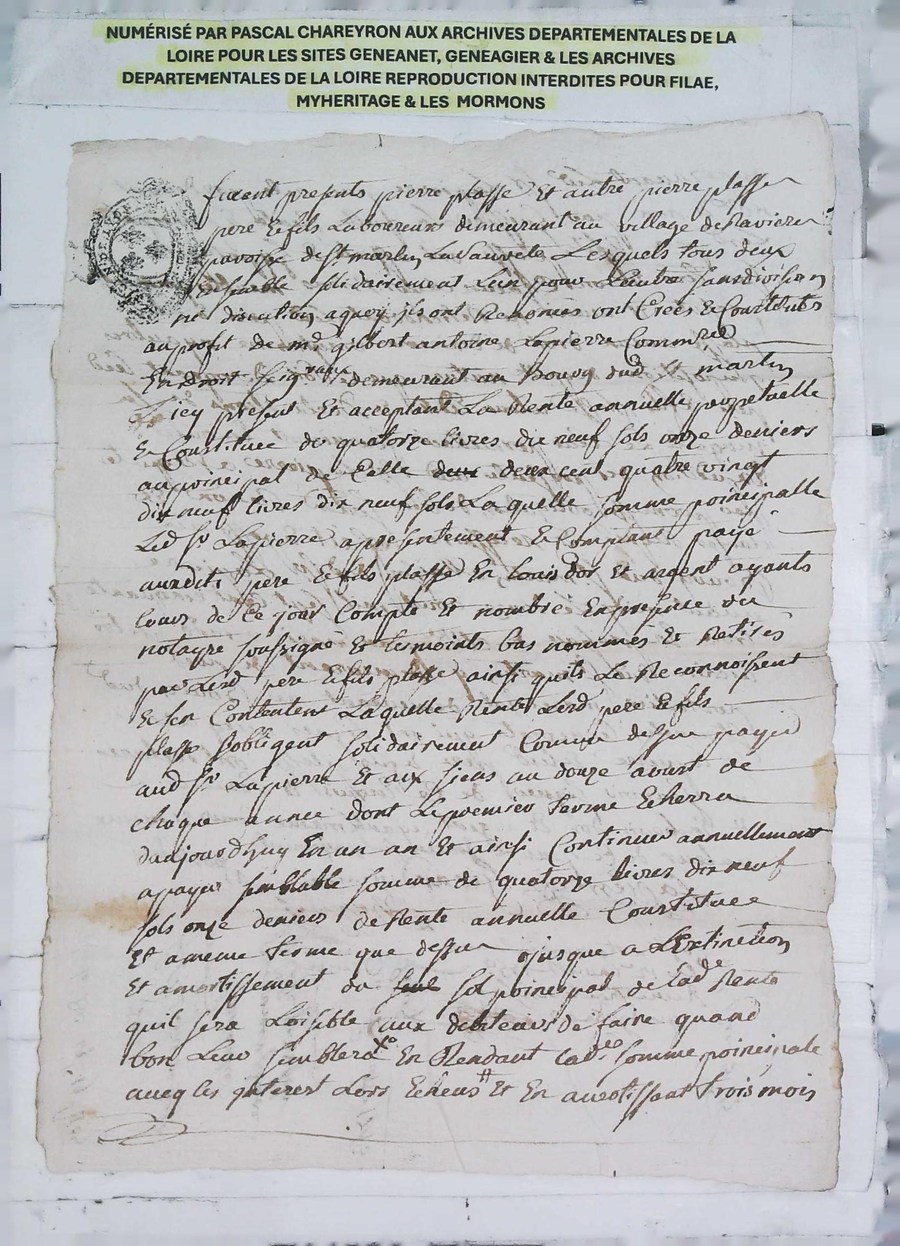 NUMÉRISÉ PAR PASCAL CHAREYRON AUX ARCHIVES DEPARTEMENTALES DE LA
LOIRE POUR LES SITES GENEANET, GENEAGIER & LES ARCHIVES
DEPARTEMENTALES DE LA LOIRE REPRODUCTION INTERDITES POUR FILAE,
MYHERITAGE & LES MORMONS
furent presents pierre plasse Et autre pierre plasse
pere & fils Laboureurs demeurant au village de Raviere
paroisse de st martin La Sauveté Lesquels tous deux
Ensemble solidairement L'un pour L'autre sans division
ni discution aquoy ils ont Renoncés ont Créés & Constitués
au profit de mr gilbert antoine Lapierre Commre
En droit seigraux demeurant au Bourg dud st martin
icy present Et acceptant La Rente annuelle perpetuelle
& Constituée de quatorze livres dix neuf sols onze deniers
au principal de Celle deux cent quatre vingt
dix neuf livres dix neuf sols La quelle somme principalle
Led sr Lapierre a presentement & Comptant payé
auxdits pere & fils plasse En Louis d'or Et argent ayants
Cours de Ce jour Compté Et nombré En presence du
notayre soussigné Et tesmoints bas nommés Et Retirés
par Lesd pere & fils plasse ainsi quils Le Reconnoissent
& s'en Contentent Laquelle Rente Lesd pere & fils
plasse s'obligent solidairement Comme dessus payer
aud sr Lapierre Et aux siens au douze aoust de
chaque année dont Le premier terme Echerra
d'aujourdhuy En un an Et ainsi Continuer annuellement
a payer semblable somme de quatorze livres dix neuf
sols onze deniers de Rente annuelle Constituée
Et a meme terme que dessus jusque a L'Extinction
Et amortissement du sol principal de Lade Rente
quil sera Loisible aux debiteurs de faire quand
bon Leur semblera En Rendant lade somme principale
avecq les jnterest Lors Echeus Et En avertissant trois mois